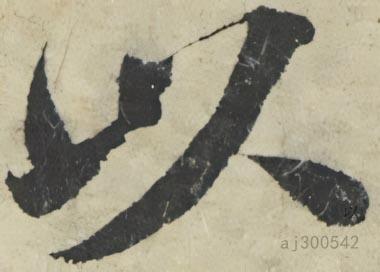 以
aj300542